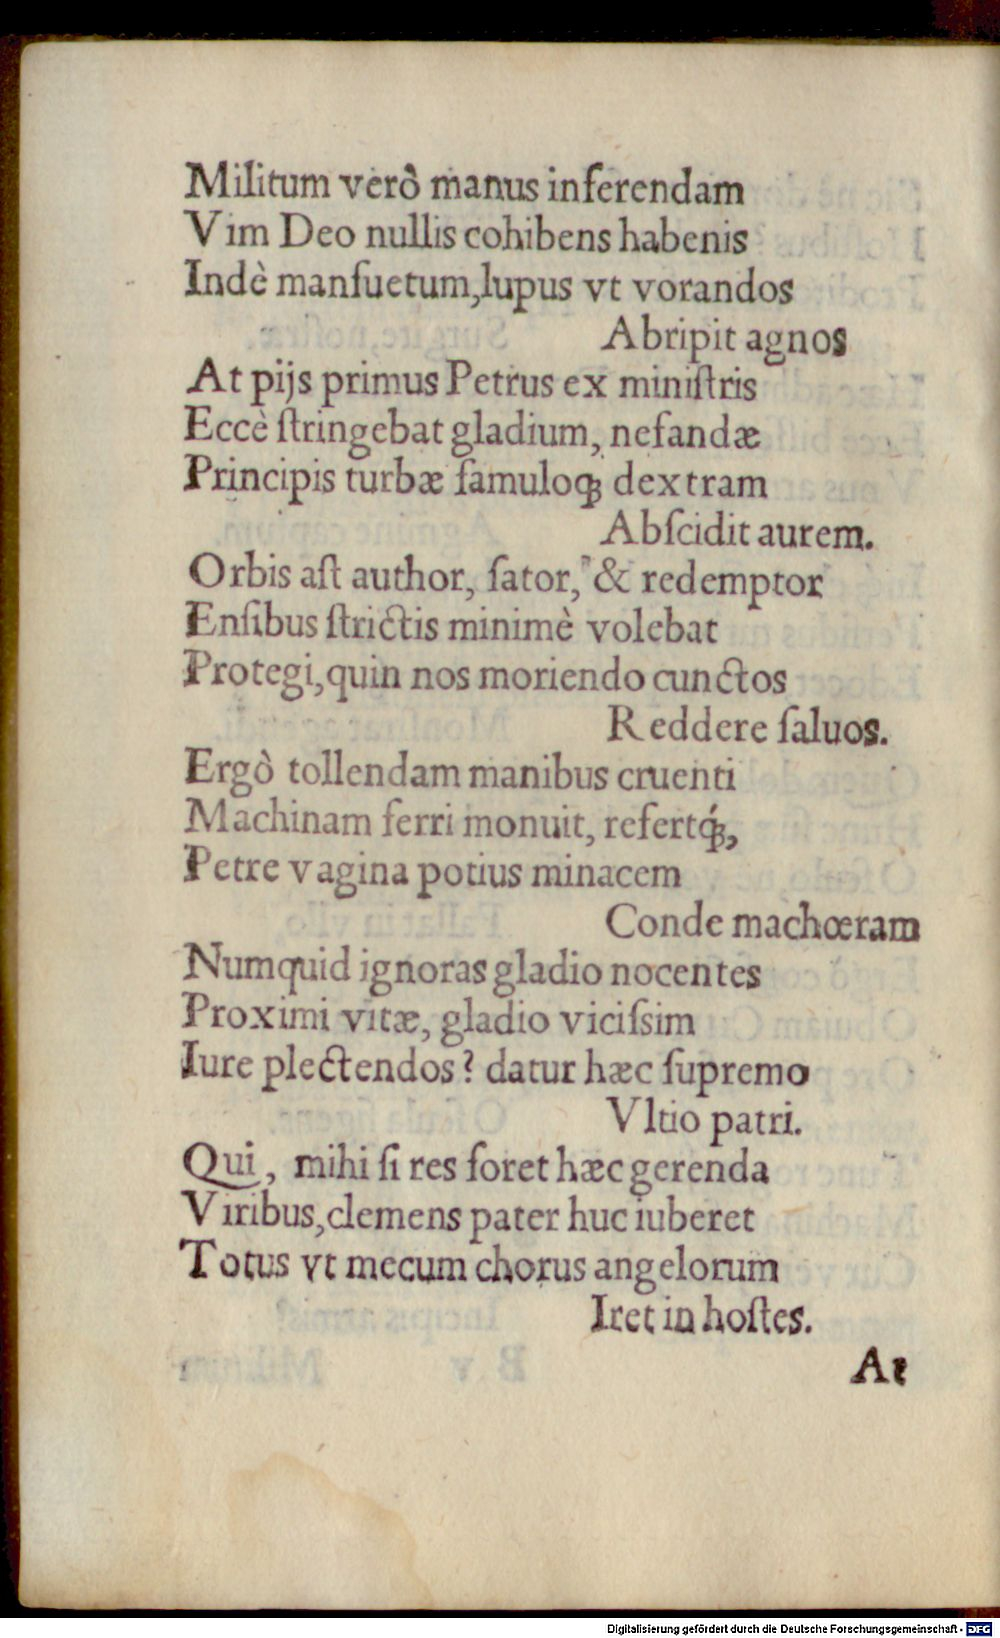 Militum verò manus inferendam
Vim Deo nullis cohibens habenis
Indè manſuetum,lupus vt vorandos
Abripit agnos
At pijs primus Petrus ex miniſtris
Eccè ſtringebat gladium, nefandæ
Principis turbæ famuloꝗ dextram
Abſcidit aurem.
Orbis aſt author, ſator, & redemptor
Enſibus ſtrictis minimè volebat
Protegi,quin nos moriendo cunctos
Reddere ſaluos.
Ergò tollendam manibus cruenti
Machinam ferri monuit, refertꝗ́,
Petre vagina potius minacem
Conde machœram
Numquid ignoras gladio nocentes
Proximi vitæ, gladio viciſsim
Iure plectendos? datur hæc ſupremo
Vltio patri.
Qui, mihi ſi res foret hæc gerenda
Viribus,clemens pater huc iuberet
Totus vt mecum chorus angelorum
Iret in hoſtes.
At
Digitalisierung gefördert durch die Deutsche Forschungsgemeinschaft - DFG